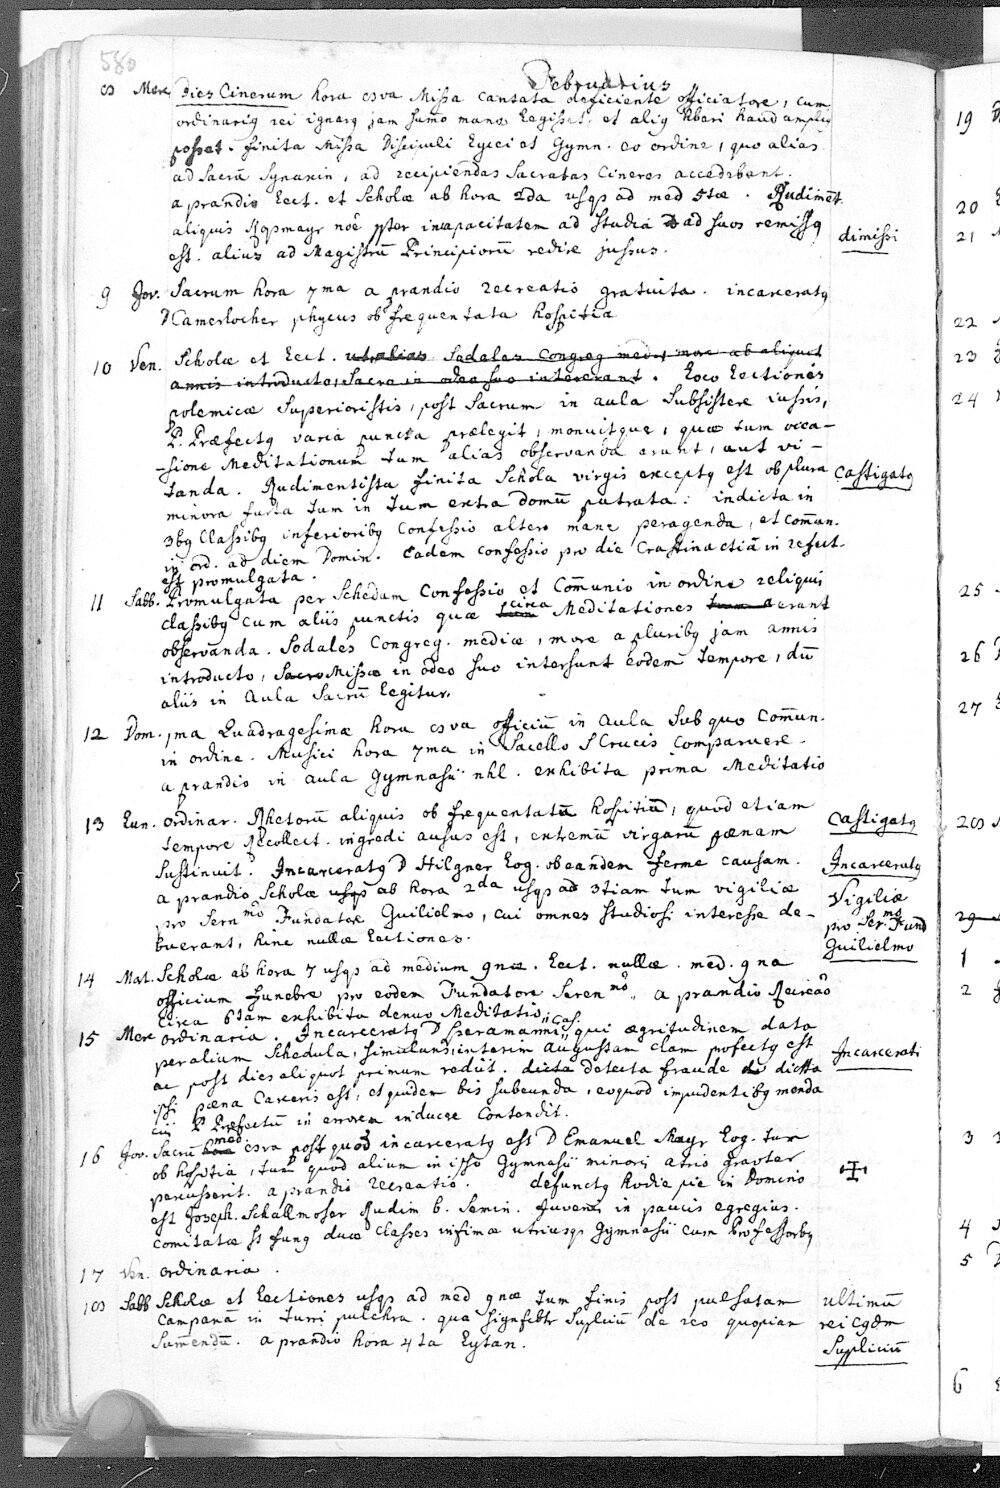 580
Februarius
8 Merc. Dies Cinerum hora 8va Missa cantata deficiente officiatore, cum
ordinariq rei ignarq jam sumo mane legisset, et aliq liberi haud ampliq
posset. finita Missa Discipuli Lycei et Gymn. eo ordine, quo alias
ad Sacrã Synaxin, ad recipiendas Sacratas Cineres accedebant.
a prandio Lect. et Scholæ ab hora 2da usqs ad med 5tæ. Rudimẽt.
aliquis nõe pter incapacitatem ad Studia ad suos remissq
est. alius ad Magistrũ Principiorũ redire jussus.
dimissi
9 Jov. Sacrum hora 7ma a prandio recreatio gratuita. incarceratq
D Camerlocher phycus ob frequentata hospitia
10 Ven. Scholæ et Lect. ut alias Sodales Congreg. mediæ, more ab aliquot
annis introducto, Sacro in odeo suo intererant. Loco Lectionis
polemicæ Superioristis, post Sacrum in aula Subsistere iussis,
P. Præfectq varia puncta prælegit, monuitque, quæ tum occa-
-sione Meditationum tum alias observanda erunt, aut vi-
tanda. Rudimentista finita Schola virgis exceptq est ob plura
minora furta tum in tum extra domũ patrata: indicta in
3bq Classibq inferioribq Confessio altero mane peragenda, et Comun.
in ord. ad diem Domin. Eadem confessio pro die Crastina etiã in refect.
est promulgata.
Castigatq
11 Sabb. Promulgata per Schedam Confessio et Comunio in ordine reliquis
classibq cum aliis punctis quæ circa Meditationes erant
observanda. Sodales Congreg. mediæ, more a pluribq jam annis
introducto, Sacro Missæ in odeo suo intersunt eodem tempore, dũ
aliis in Aula Sacrũ legitur.
12 Dom. 1ma Quadragesimæ hora 8va officiũ in Aula sub quo Comun.
in ordine. Musici hora 7ma in Sacello S Crucis Comparuere.
a prandio in aula Gymnasii nhl. exhibita prima Meditatio
13 Lun. ordinar. Rhetorũ aliquis ob frequentatũ hospitiũ, quod etiam
tempore Recollect. ingredi ausus est, extremã virgarũ pœnam
Sustinuit. Incarceratq D Hilgner Log. ob eandem ferme causam.
a prandio Scholæ usqs ab hora 2da usqs ad 3tiam tum vigiliæ
pro Serñmo Fundatore Guilielmo, cui omnes Studiosi interesse de-
buerant, hinc nullæ Lectiones.
Castigatq
Incarceratq
Vigiliæ
pro Ser.mo Fund
Guilielmo
14 Mart. Scholæ ab hora 7 usqs ad medium 9næ. Lect. nullæ. med. 9na
officium funebre pro eodem Fundatore Serenmo. a prandio Recreãõ
Circa 6tam exhibita denuo Meditatio.
15 Merc ordinaria. Incarceratq D Cas. qui ægritudinem data
per alium Schedula, simulans, interim Augustam clam pofectq est
ac post dies aliquot primum rediit. dicta detecta fraude dicta
ipsi pœna Carceris est, et quidem bis subeunda, eoquod impudentibq mendaciis
P Præfectũ in errorem inducere Contendit.
Incarcerati
16 Jov. Sacrũ med 8va post quod incarceratq est D Emanuel Mayr Log. tum
ob hospitia, tum quod alium in ipso Gymnasii minoris atrio graviter
percusserit. a prandio recreatio. defunctq hodie pie in Domino
est Joseph. Schallmoser Rudim b. Semin. Juvenis in paucis egregius.
Comitatæ st funq duæ Classes infimæ utriusqs Gymnasii cum Professoribq
17 Ven. ordinaria.
18 Sabb Scholæ et Lectiones usqs ad med 9næ tum finis post pulsatam
Campanã in turri pulchra. qua signfcbtr Supliciũ de reo quopiam
Sumendũ. a prandio hora 4ta Lytan.
ultimũ
rei
Supliciũ
19
20
21
22
23
24
25
26
27
28
29
1
2
3
4
5
6